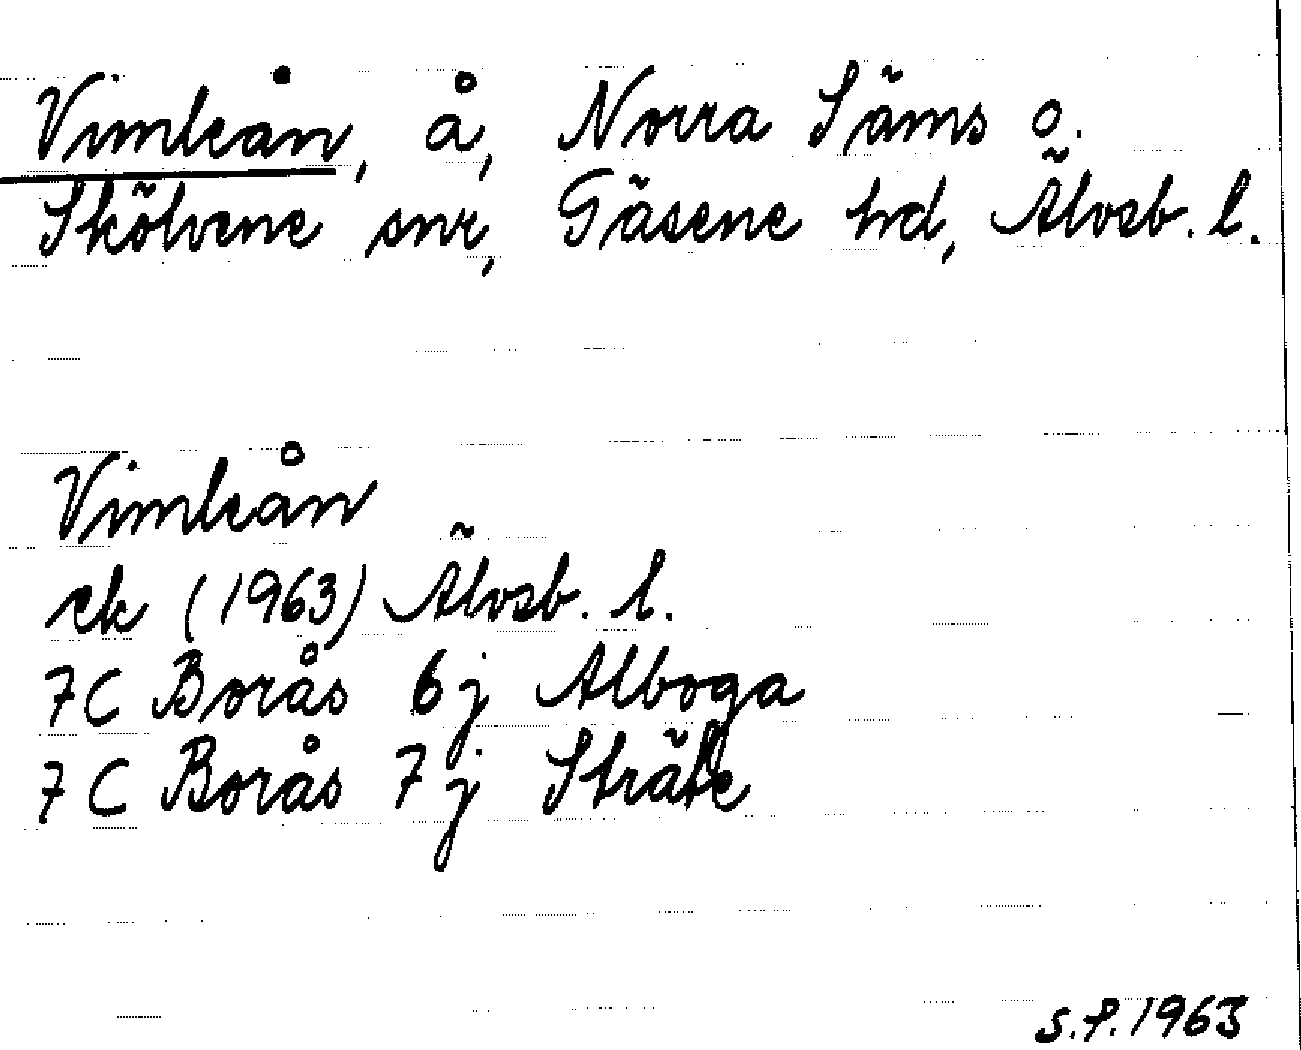 Vimleån, å, Norra Säms o.
Skölvene snr, Gäsene hd, Älvsb. l.
Vimleån
ek (1963) Älvsb. l.
7C Borås 6j Alboga
7C Borås 7j Sträte
S.P. 1963